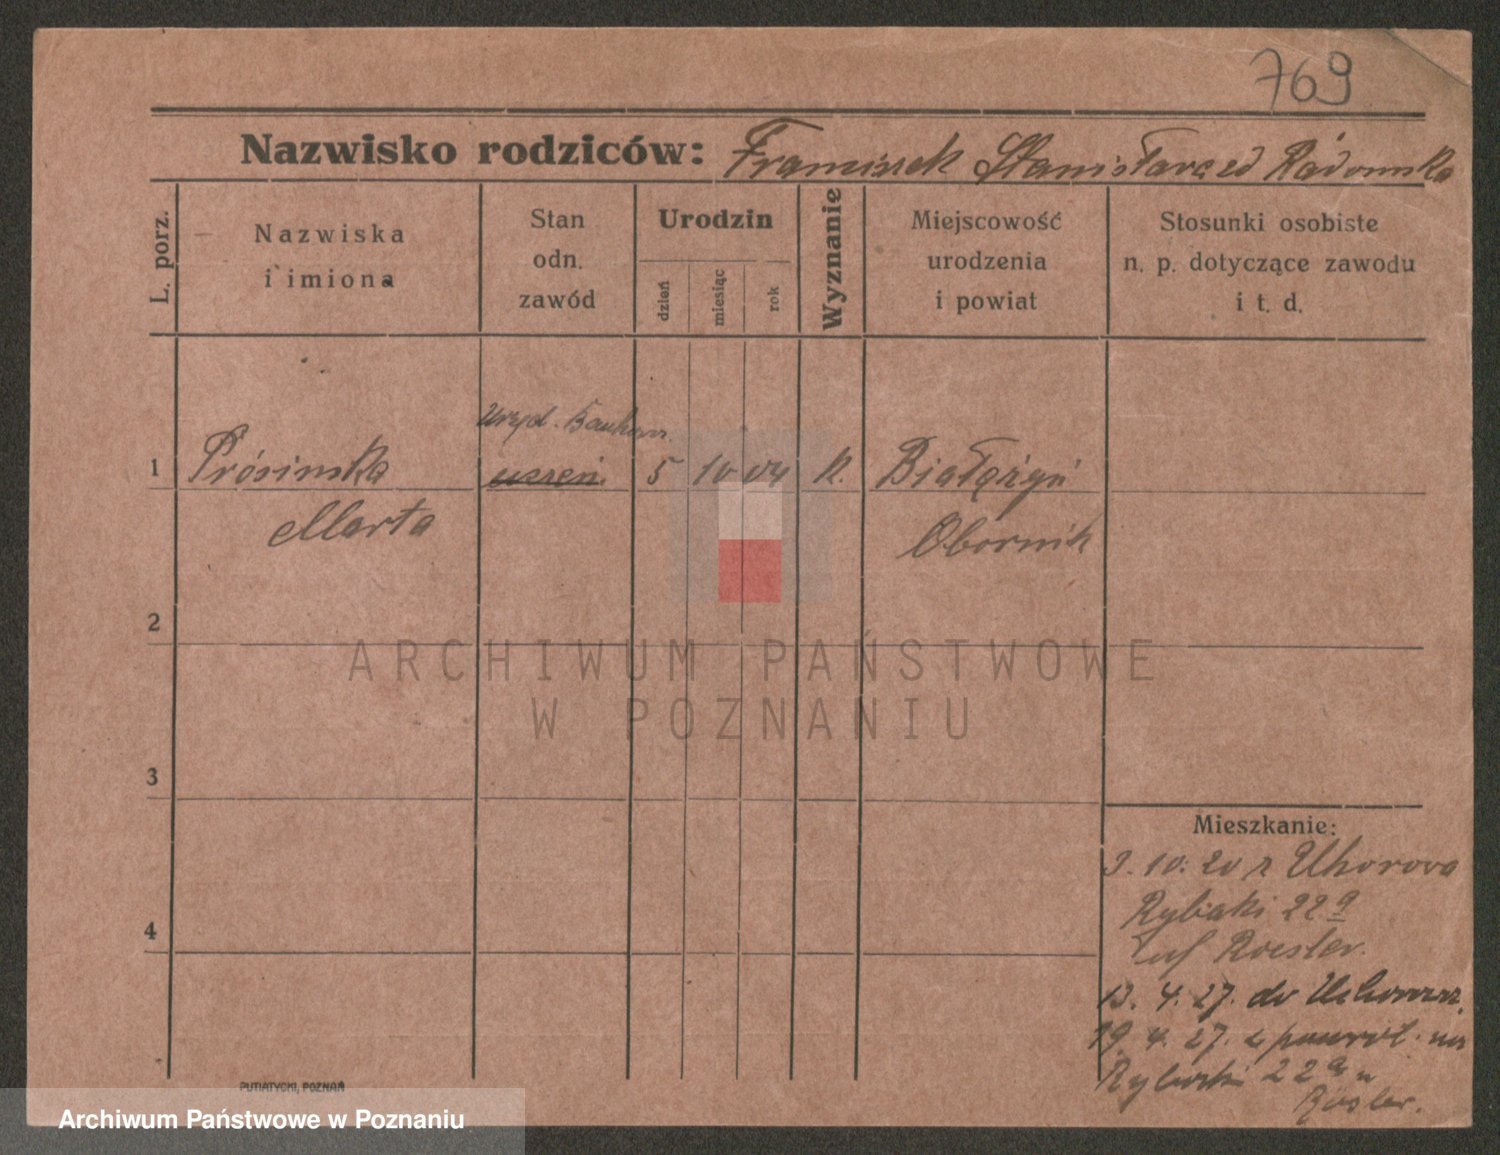 769
Nazwisko rodziców: Franciszek Stanisława zd Radomska
L. porz.
Nazwiska
i imiona
Stan
odn.
zawód
Urodzin
dzień
miesiąc
rok
Wyznanie
Miejscowość
urodzenia
i powiat
Stosunki osobiste
n. p. dotyczące zawodu
i t. d.
Urzęd. Bankow.
1 Prósinska uczeń 5 10 04 K. Białężyn
Marta Obornik
2
ARCHIWUM PAŃSTWOWE
W POZNANIU
3
Mieszkanie:
3. 10. 20 z
Rybaki 22a
Roesler.
4
13. 4. 27. do
19. 4. 27. z powrót. na
Rybaki 22a u
Rösler.
PUTIATYCKI, POZNAŃ
Archiwum Państwowe w Poznaniu